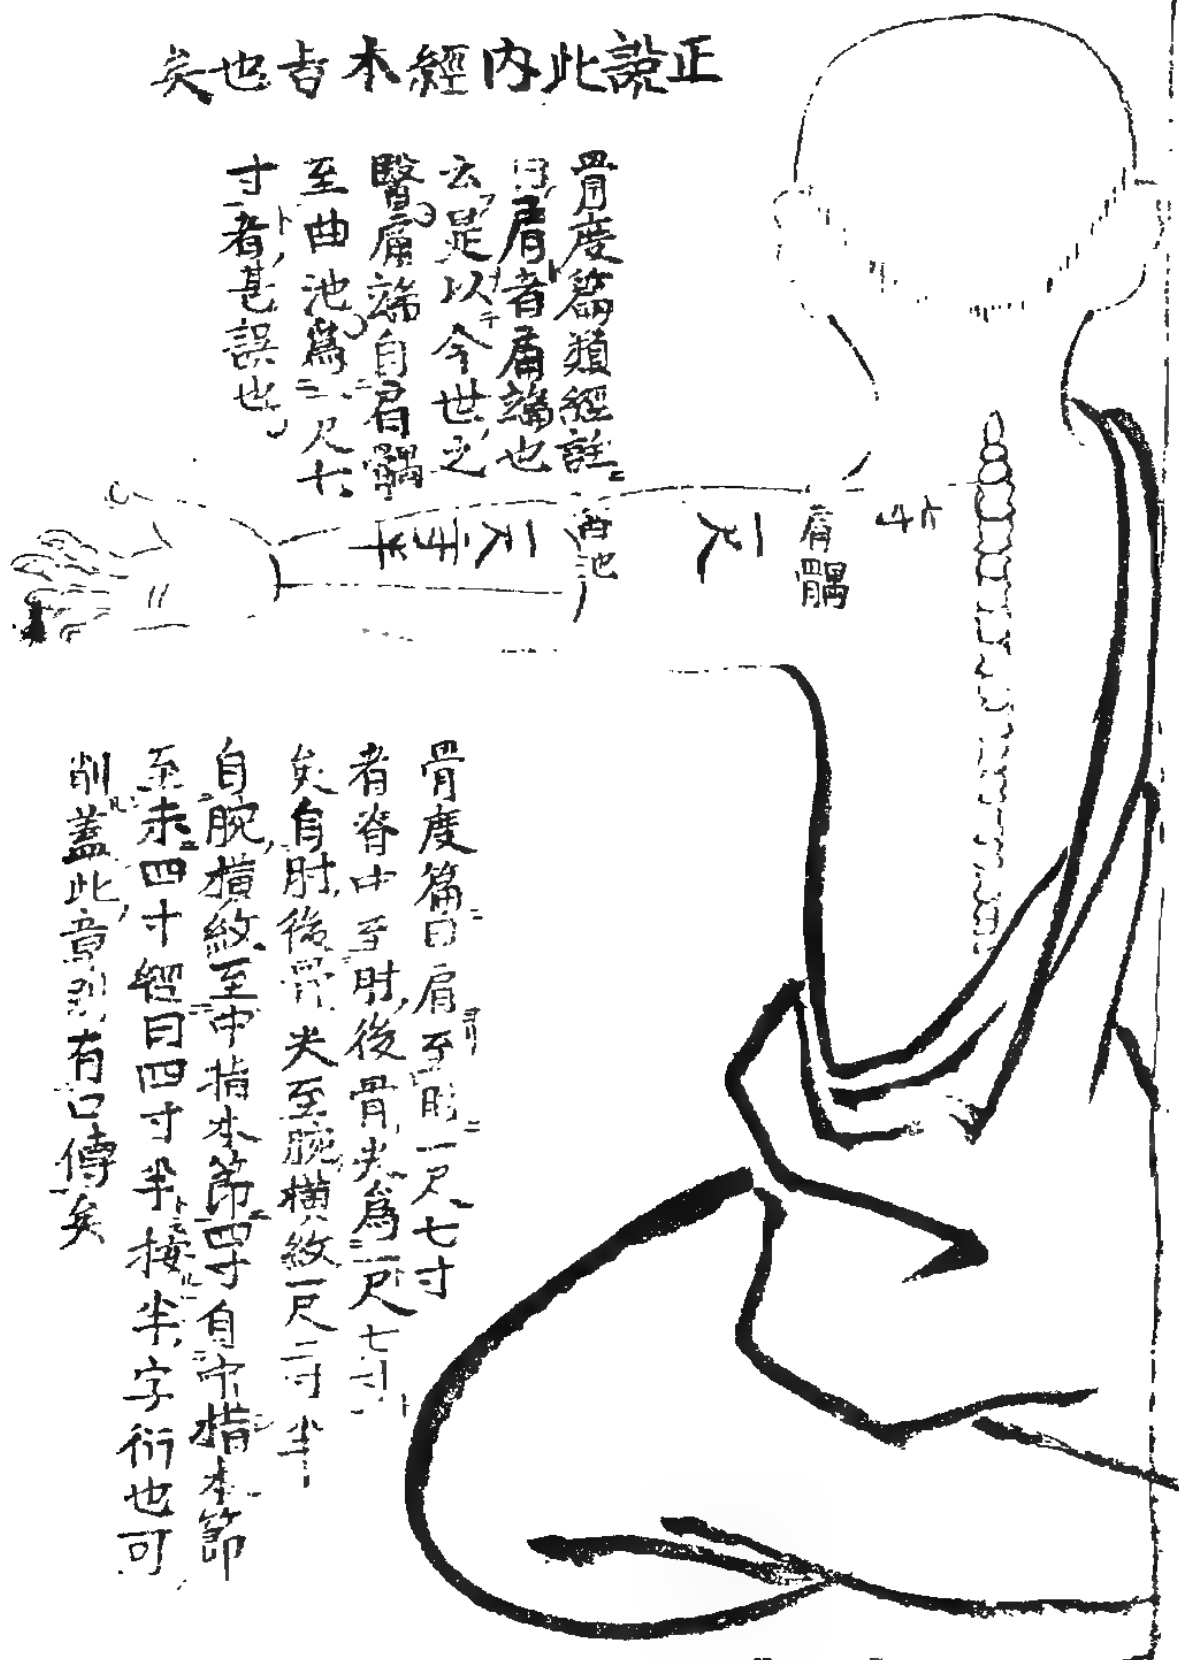 正說此内經本旨也矣
骨度篇類經註
曰肩者肩端也
云是以今世之
醫肩端自肩髃
至曲池爲一尺七
寸者甚誤也
七寸
肩髃
一尺
曲池
一尺二寸半
骨度篇曰肩至肘一尺七寸
者脊中至肘後骨尖爲一尺七寸
矣自肘後骨尖至腕横紋一尺二寸半
自腕横紋至中指本節四寸自中指本節
至末四寸經曰四寸半按半字衍也可
削蓋此章別有口傳矣